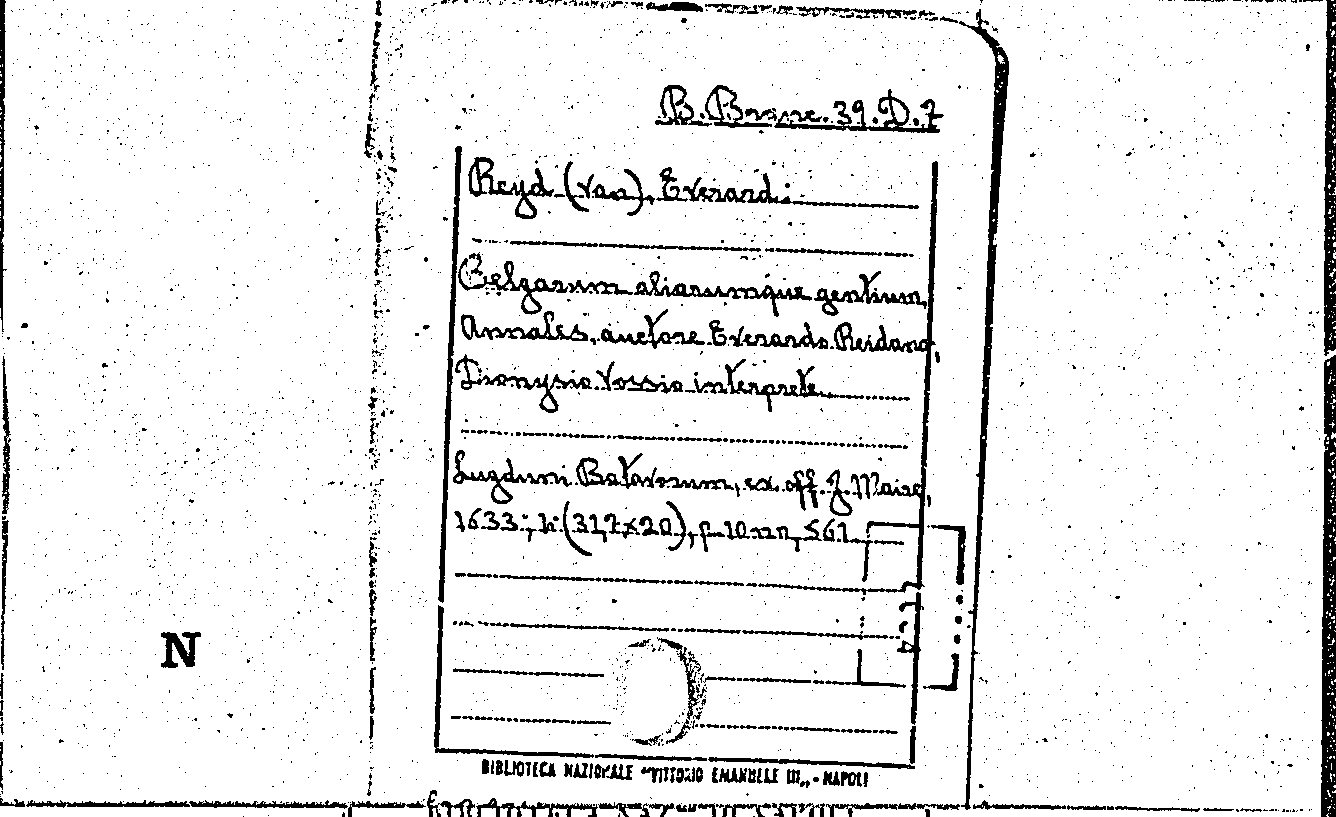 B. Branc. 39. D. 7
Reyd (van), Everard:
Belgarum aliarumque gentium
Annales, auctore Everardo Reidano,
Dionysio Vossio interprete.
Lugduni Batavorum, ex off. J. Maire,
1633; in (31,7x20), p. 10 nn, 561
N
BIBLIOTECA NAZIONALE "VITTORIO EMANUELE III„ - NAPOLI